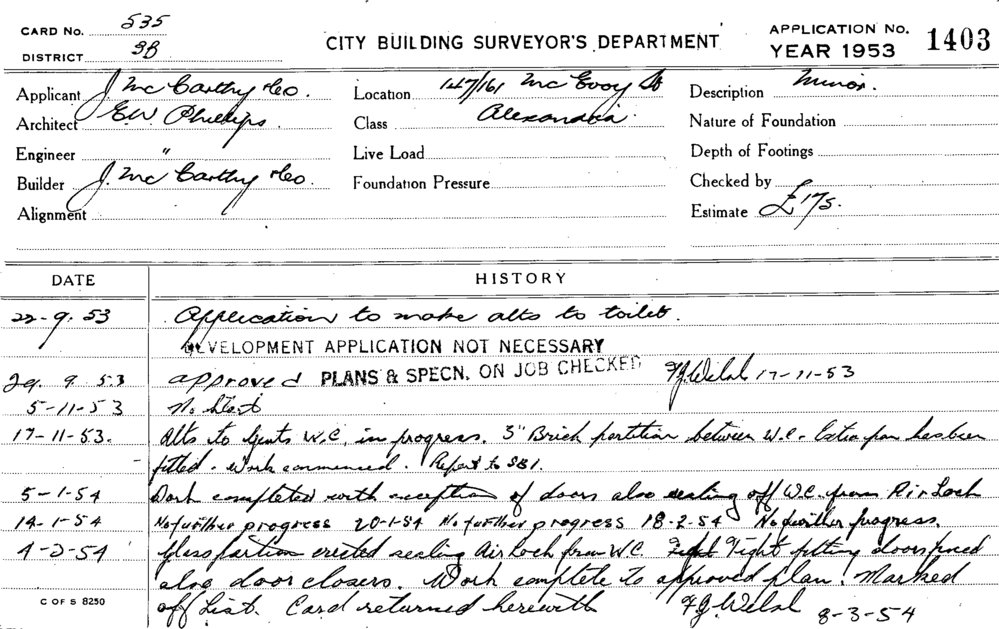 CARD No. 535
DISTRICT SB
CITY BUILDING SURVEYOR'S DEPARTMENT
APPLICATION No. 1403
YEAR 1953
Applicant J. McCarthy & Co.
Location 147/161 McEvoy St
Description Minor.
Architect E.W. Phillips
Class Alexandria.
Nature of Foundation
Engineer "
Live Load
Depth of Footings
Builder J. McCarthy & Co.
Foundation Pressure
Checked by
Alignment
Estimate £175.
DATE HISTORY
22-9.53 Application to make alts to toilet.
DEVELOPMENT APPLICATION NOT NECESSARY
29. 9. 53 approved PLANS & SPECN. ON JOB CHECKED F.J. Welsh 17-11-53
5-11-53 No start
17-11-53. Alts to Gents W.C. in progress. 3" Brick partition between W.C. Extra pan has been
fitted. Work commenced. Report to SBI.
5-1-54 Work completed with exception of doors also sealing off W.C. from Air Lock
14-1-54 No further progress 20-1-54 No further progress 18-2-54 No further progress.
4-2-54 Glass partion erected sealing Air Lock from W.C. Tight fitting doors fixed
also door closers. Work complete to approved plan. Marked
off List. Card returned herewith F.J. Welsh 8-3-54
C OF S 8250